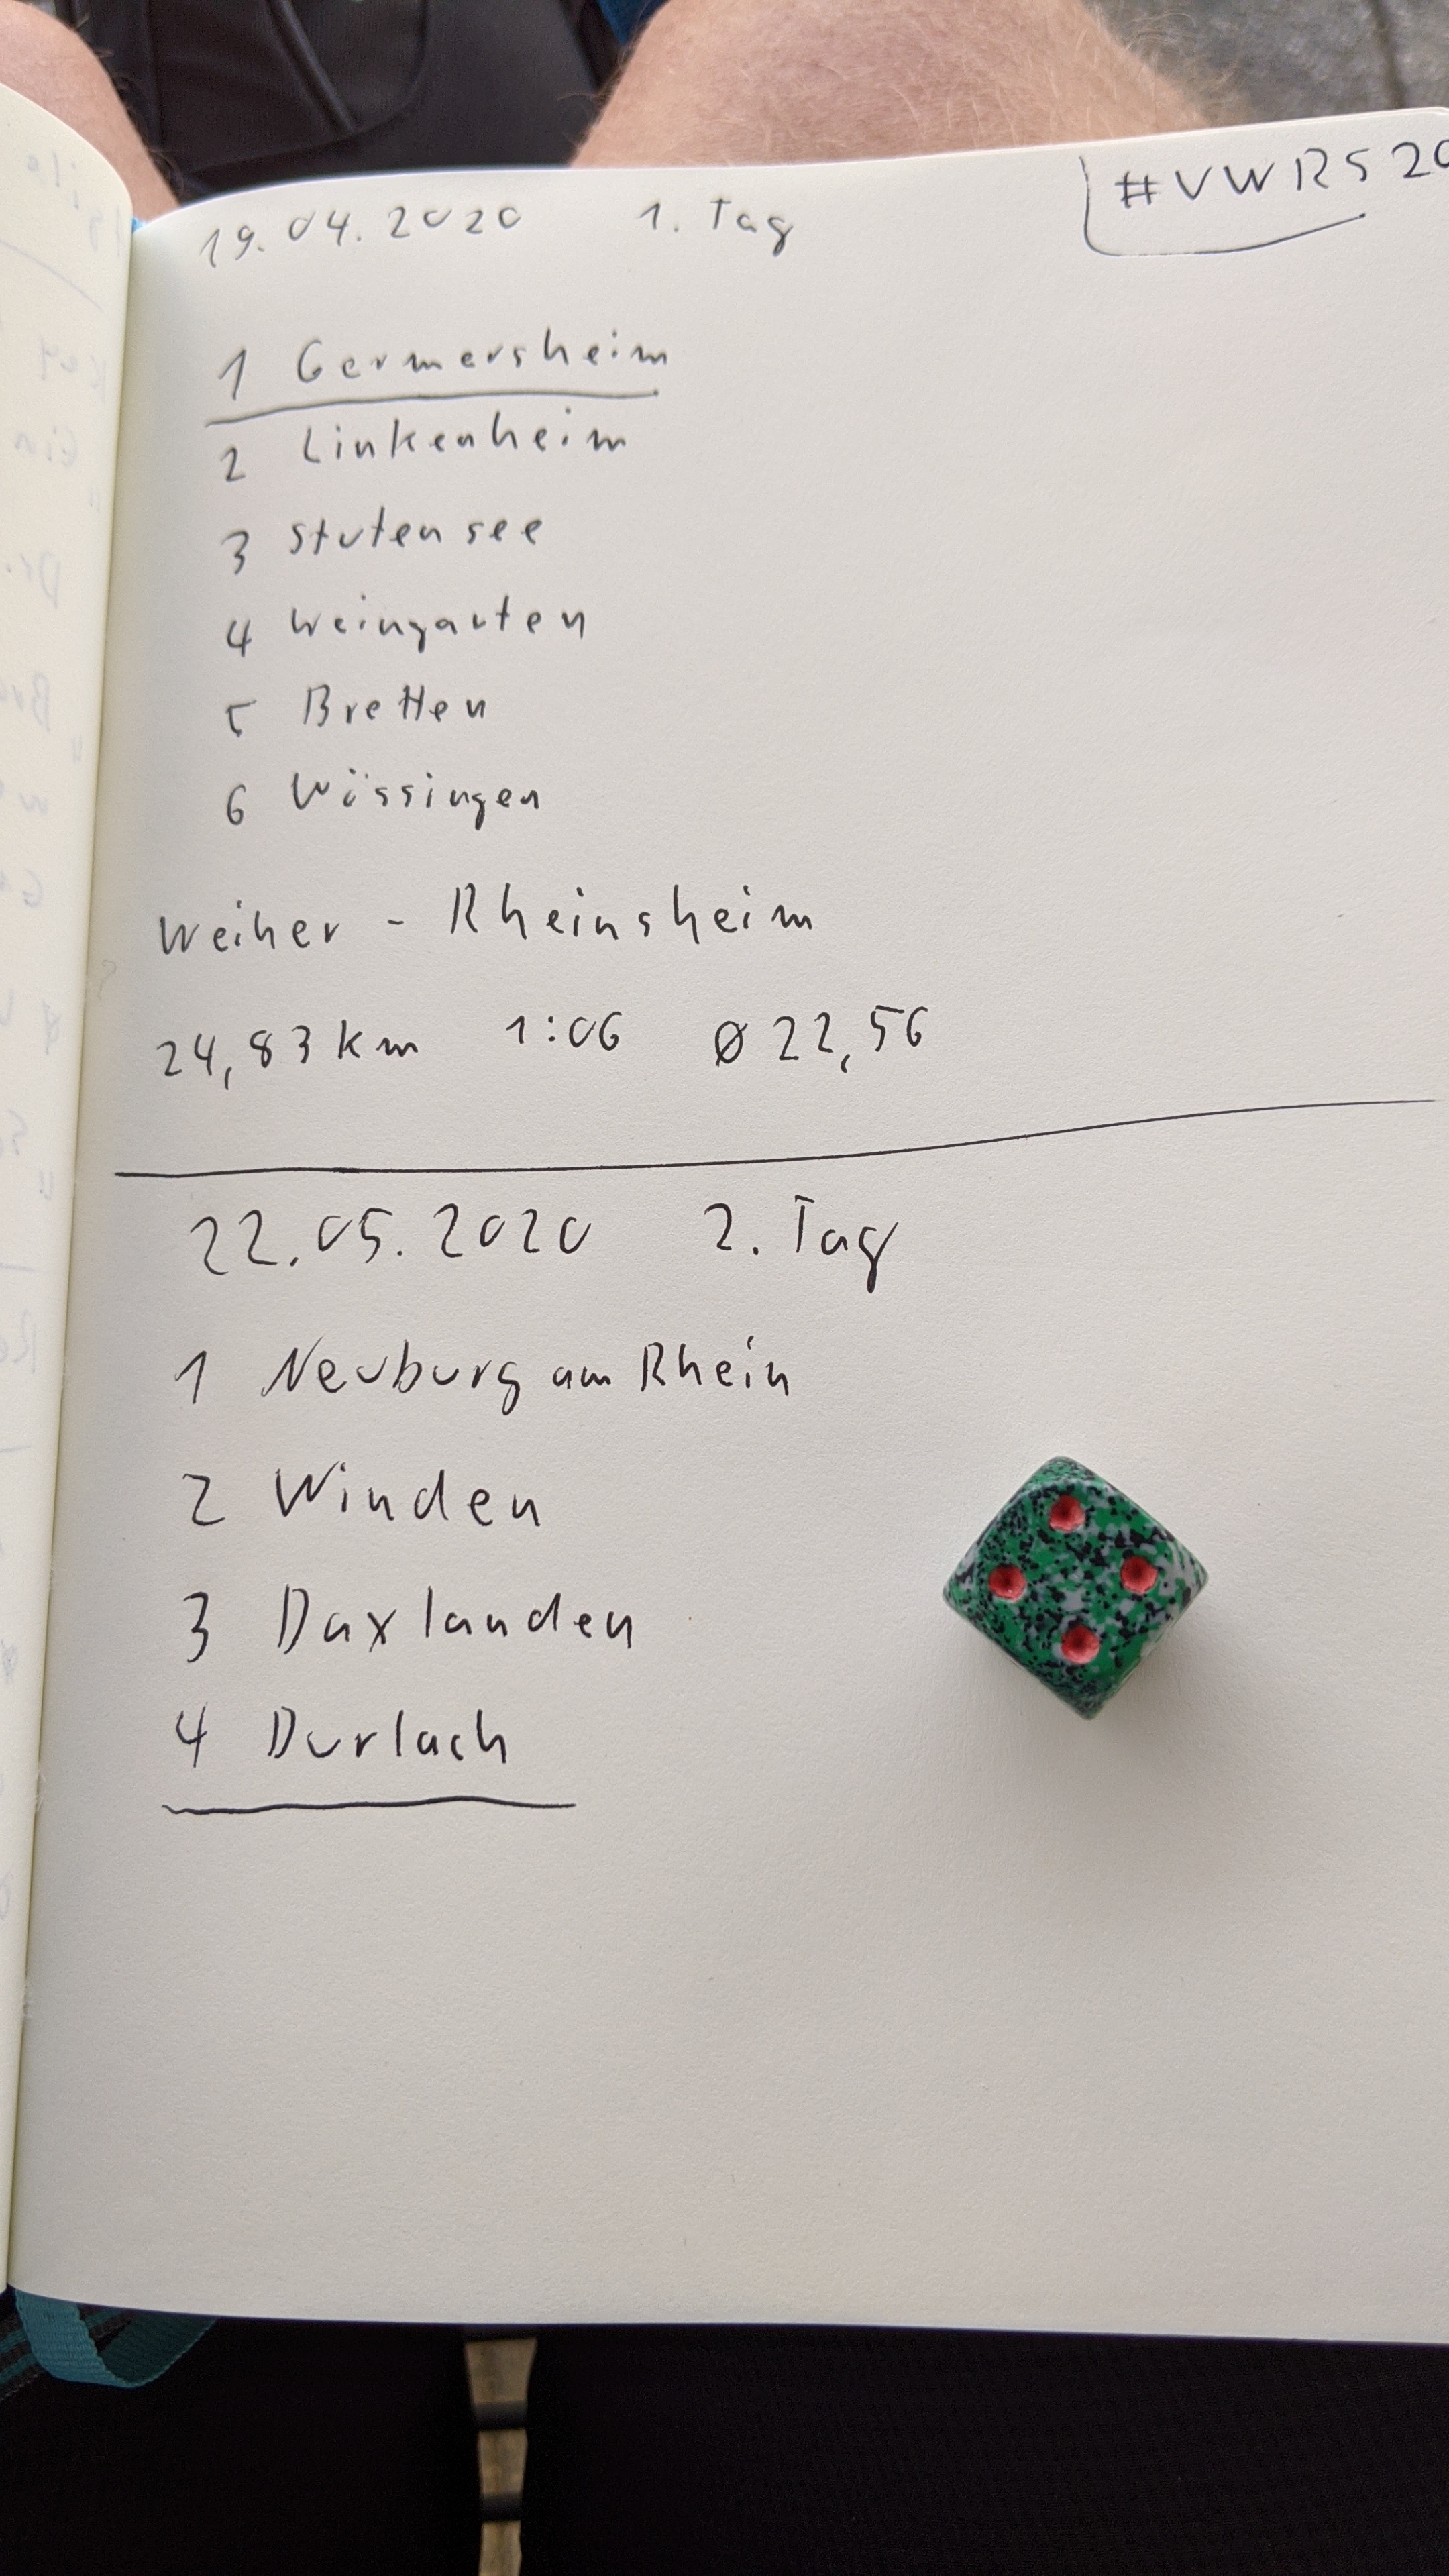 19.04.2020 1. Tag
#VWRS20
1 Germersheim
2 Linkenheim
3 Stutensee
4 Weingarten
5 Bretten
6 Wössingen
Weiher - Rheinsheim
24,83 km 1:06 Ø 22,56
22.05.2020 2. Tag
1 Neuburg am Rhein
2 Winden
3 Daxlanden
4 Durlach